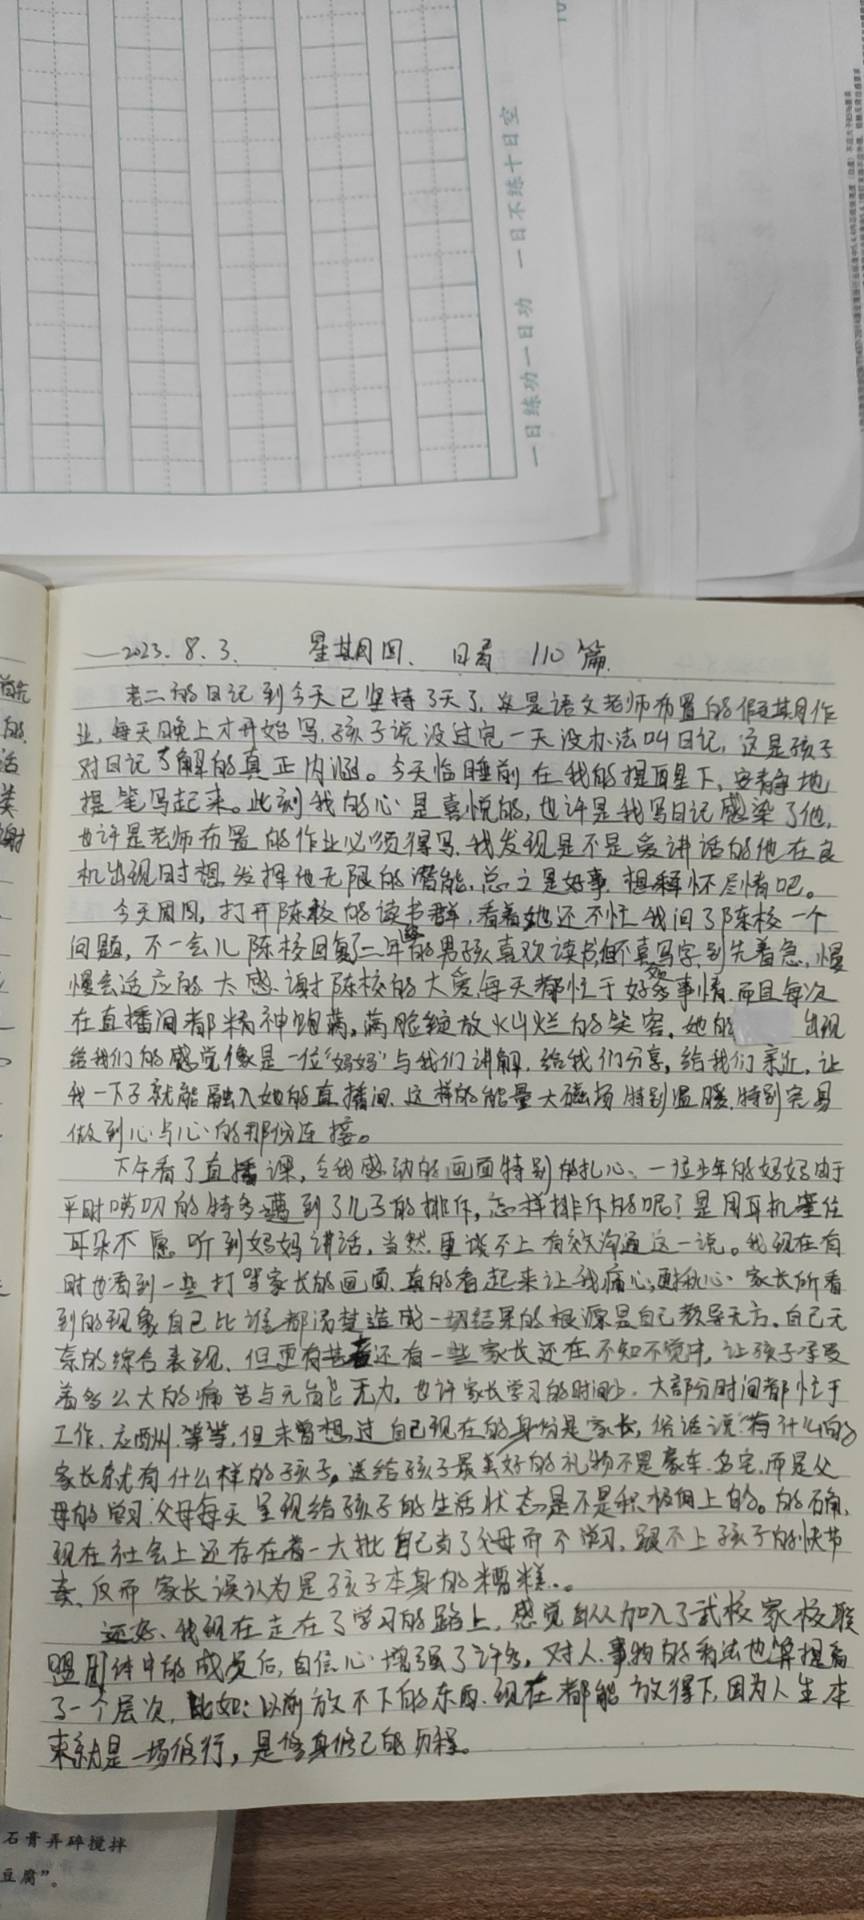 一日练功一日功 一日不练十日空
2023.8.3. 星期四. 日看 110篇.
老二的日记到今天已坚持3天了，这是语文老师布置的假期作
业，每天晚上才开始写，孩子说没过完一天没办法叫日记，这是孩子
对日记了解的真正内涵。今天临睡前在我的提醒下，安静地
提笔写起来。此刻我的心是喜悦的，也许是我写日记感染了他，
也许是老师布置的作业必须得写，我发现是不是爱讲话的他在良
机出现时想发挥他无限的潜能，总之是好事，想释怀尽情吧。
今天周四，打开陈校的读书群，看着她还不忙我问了陈校一个
问题，不一会儿陈校回复了二年级的男孩喜欢读书，但不喜写字，别先着急，慢
慢会适应的，太感谢陈校的大爱，每天都忙于好多事情，而且每次
在直播间都精神饱满，满脸绽放灿烂的笑容，她的 出现
给我们的感觉像是一位“妈妈”与我们讲解，给我们分享，给我们亲近，让
我一下子就能融入她的直播间，这样的能量大磁场特别温暖，特别容易
做到心与心的那份连接。
下午看了直播课，令我感动的画面特别的扎心，一位少年的妈妈由于
平时唠叨的特多遭到了儿子的排斥，怎样排斥的呢？是用耳机塞住
耳朵不愿听到妈妈讲话，当然更谈不上有效沟通这一说。我现在有
时也看到一些打骂家长的画面，真的看起来让我痛心，更揪心，家长所看
到的现象自己比谁都清楚造成一切结果的根源是自己教导无方，自己无
奈的综合表现，但更有甚者还有一些家长还在不知不觉中，让孩子承受
着多么大的痛苦与无能无力，也许家长学习的时间少，大部分时间都忙于
工作，应酬，等等，但未曾想过自己现在的身份是家长，俗话说：有什么的
家长就有什么样的孩子，送给孩子最美好的礼物不是豪车、名宅，而是父
母的学习，父母每天呈现给孩子的生活状态是不是积极向上的。的确，
现在社会上还存在着一大批自己当了父母而不学习，跟不上孩子的快节
奏，反而家长误认为是孩子本身的糟糕。。
还好，我现在走在了学习的路上，感觉自从加入了武校家校联
盟团体中的成员后，自信心增强了许多，对人、事物的看法也算提高
了一个层次，比如：以前放不下的东西，现在都能放得下，因为人生本
来就是一场修行，是修身修己的历程。
石膏弄碎搅拌
豆腐”。